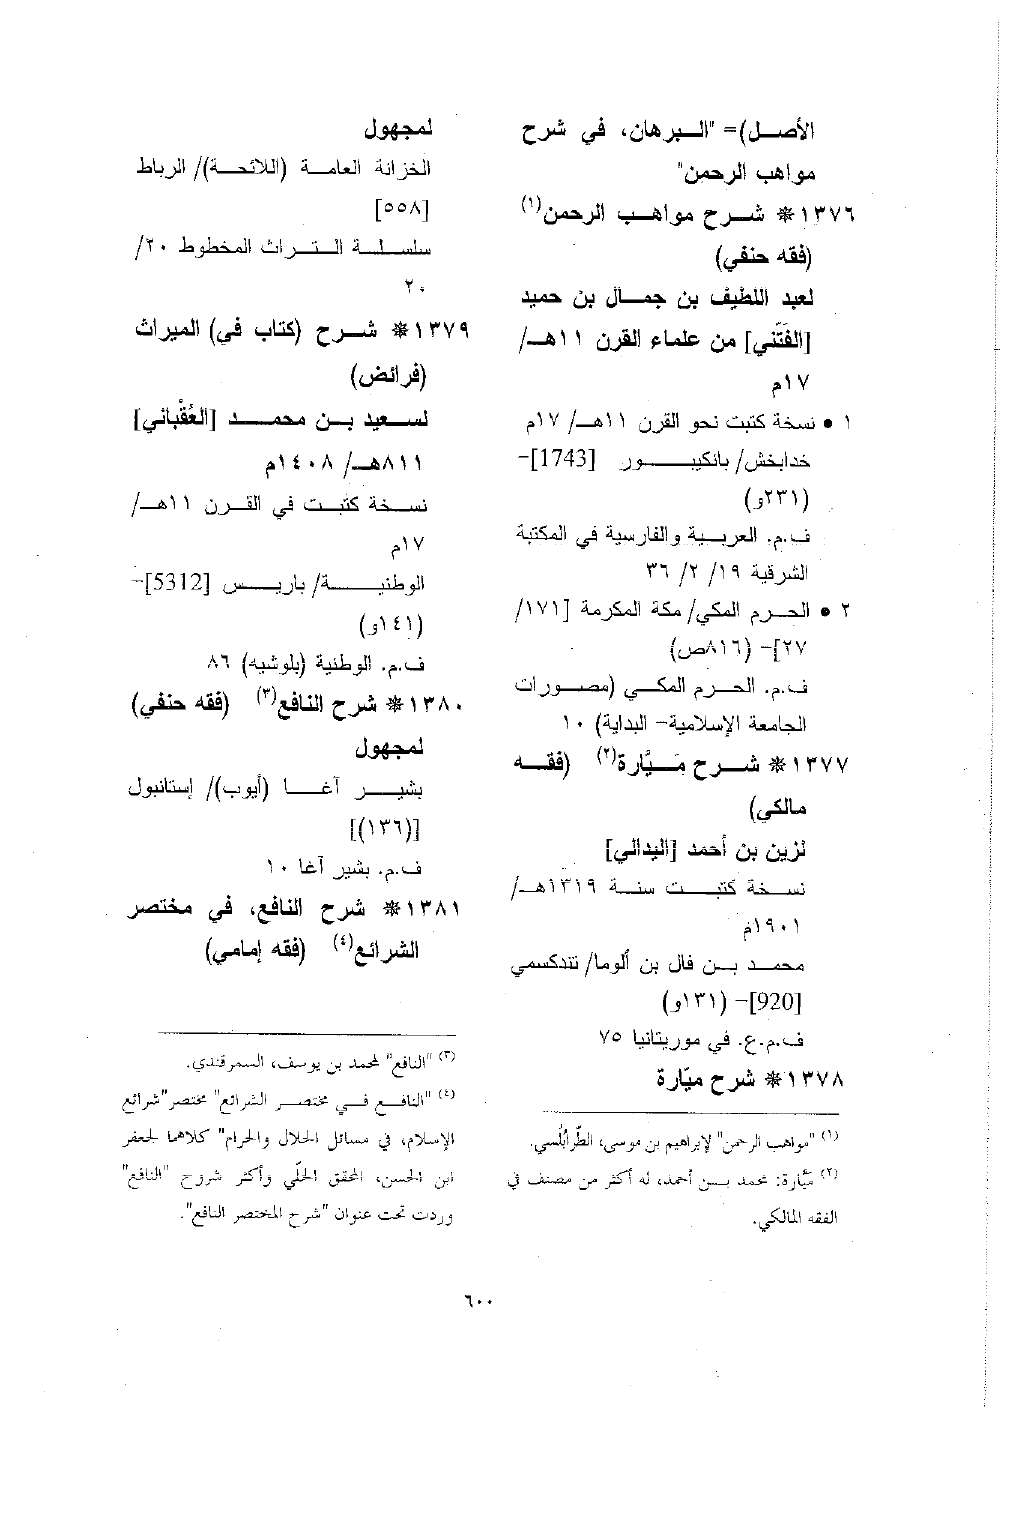 الأصل)= "البرهان، في شرح
مواهب الرحمن"
١٣٧٦* شرح مواهب الرحمن(١)
(فقه حنفي)
لعبد اللطيف بن جمال بن حميد
[الفَتَّني] من علماء القرن ١١هـ/
١٧م
١ • نسخة كتبت نحو القرن ١١هـ/ ١٧م
خدابخش/ بانكيبور [1743]-
(٢٣١و)
ف.م. العربية والفارسية في المكتبة
الشرقية ١٩/ ٢/ ٣٦
٢ • الحرم المكي/ مكة المكرمة [١٧١/
٢٧]- (٨١٦ص)
ف.م. الحرم المكي (مصورات
الجامعة الإسلامية- البداية) ١٠
١٣٧٧* شرح مَيَّارة(٢) (فقه
مالكي)
لزين بن أحمد [اليدالي]
نسخة كتبت سنة ١٣١٩هـ/
١٩٠١م
محمد بن فال بن ألوما/ تندكسمي
[920]- (١٣١و)
ف.م.ع. في موريتانيا ٧٥
١٣٧٨* شرح ميّارة
(١) "مواهب الرحمن" لإبراهيم بن موسى، الطّرابُلْسي.
(٢) مَيَّارة: محمد بن أحمد، له أكثر من مصنف في
الفقه المالكي.
لمجهول
الخزانة العامة (اللائحة)/ الرباط
[٥٥٨]
سلسلة التراث المخطوط ٢٠/
٢٠
١٣٧٩* شرح (كتاب في) الميراث
(فرائض)
لسعيد بن محمد [العُقْباني]
٨١١هـ/ ١٤٠٨م
نسخة كتبت في القرن ١١هـ/
١٧م
الوطنية/ باريس [5312]-
(١٤١و)
ف.م. الوطنية (بلوشيه) ٨٦
١٣٨٠* شرح النافع(٣) (فقه حنفي)
لمجهول
بشير آغا (أيوب)/ إستانبول
[(١٣٦)]
ف.م. بشير آغا ١٠
١٣٨١* شرح النافع، في مختصر
الشرائع(٤) (فقه إمامي)
(٣) "النافع" لمحمد بن يوسف، السمرقندي.
(٤) "النافع في مختصر الشرائع" مختصر"شرائع
الإسلام، في مسائل الحلال والحرام" كلاهما لجعفر
ابن الحسن، المحقق الحلّي وأكثر شروح "النافع"
وردت تحت عنوان "شرح المختصر النافع".
٦٠٠